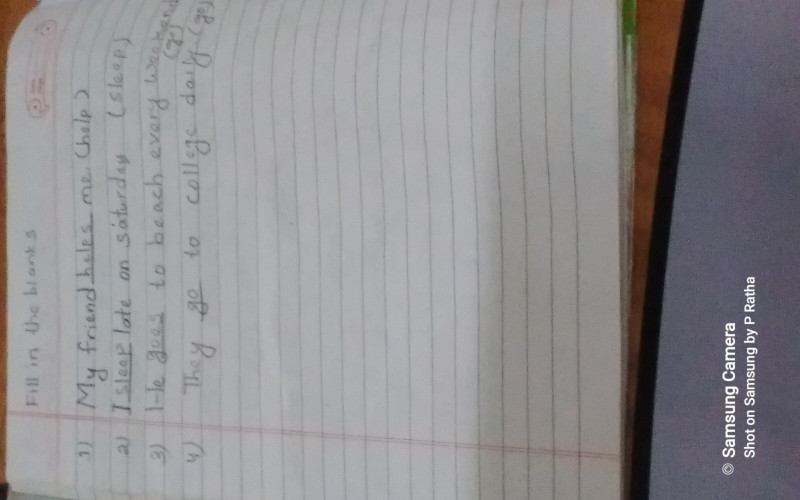 Fill in the blanks
1) My friend helps me. (help)
2) I sleep late on saturday (sleep)
3) He goes to beach every weekend
(go)
4) They go to college daily (go)
© Samsung Camera
Shot on Samsung by P Ratha